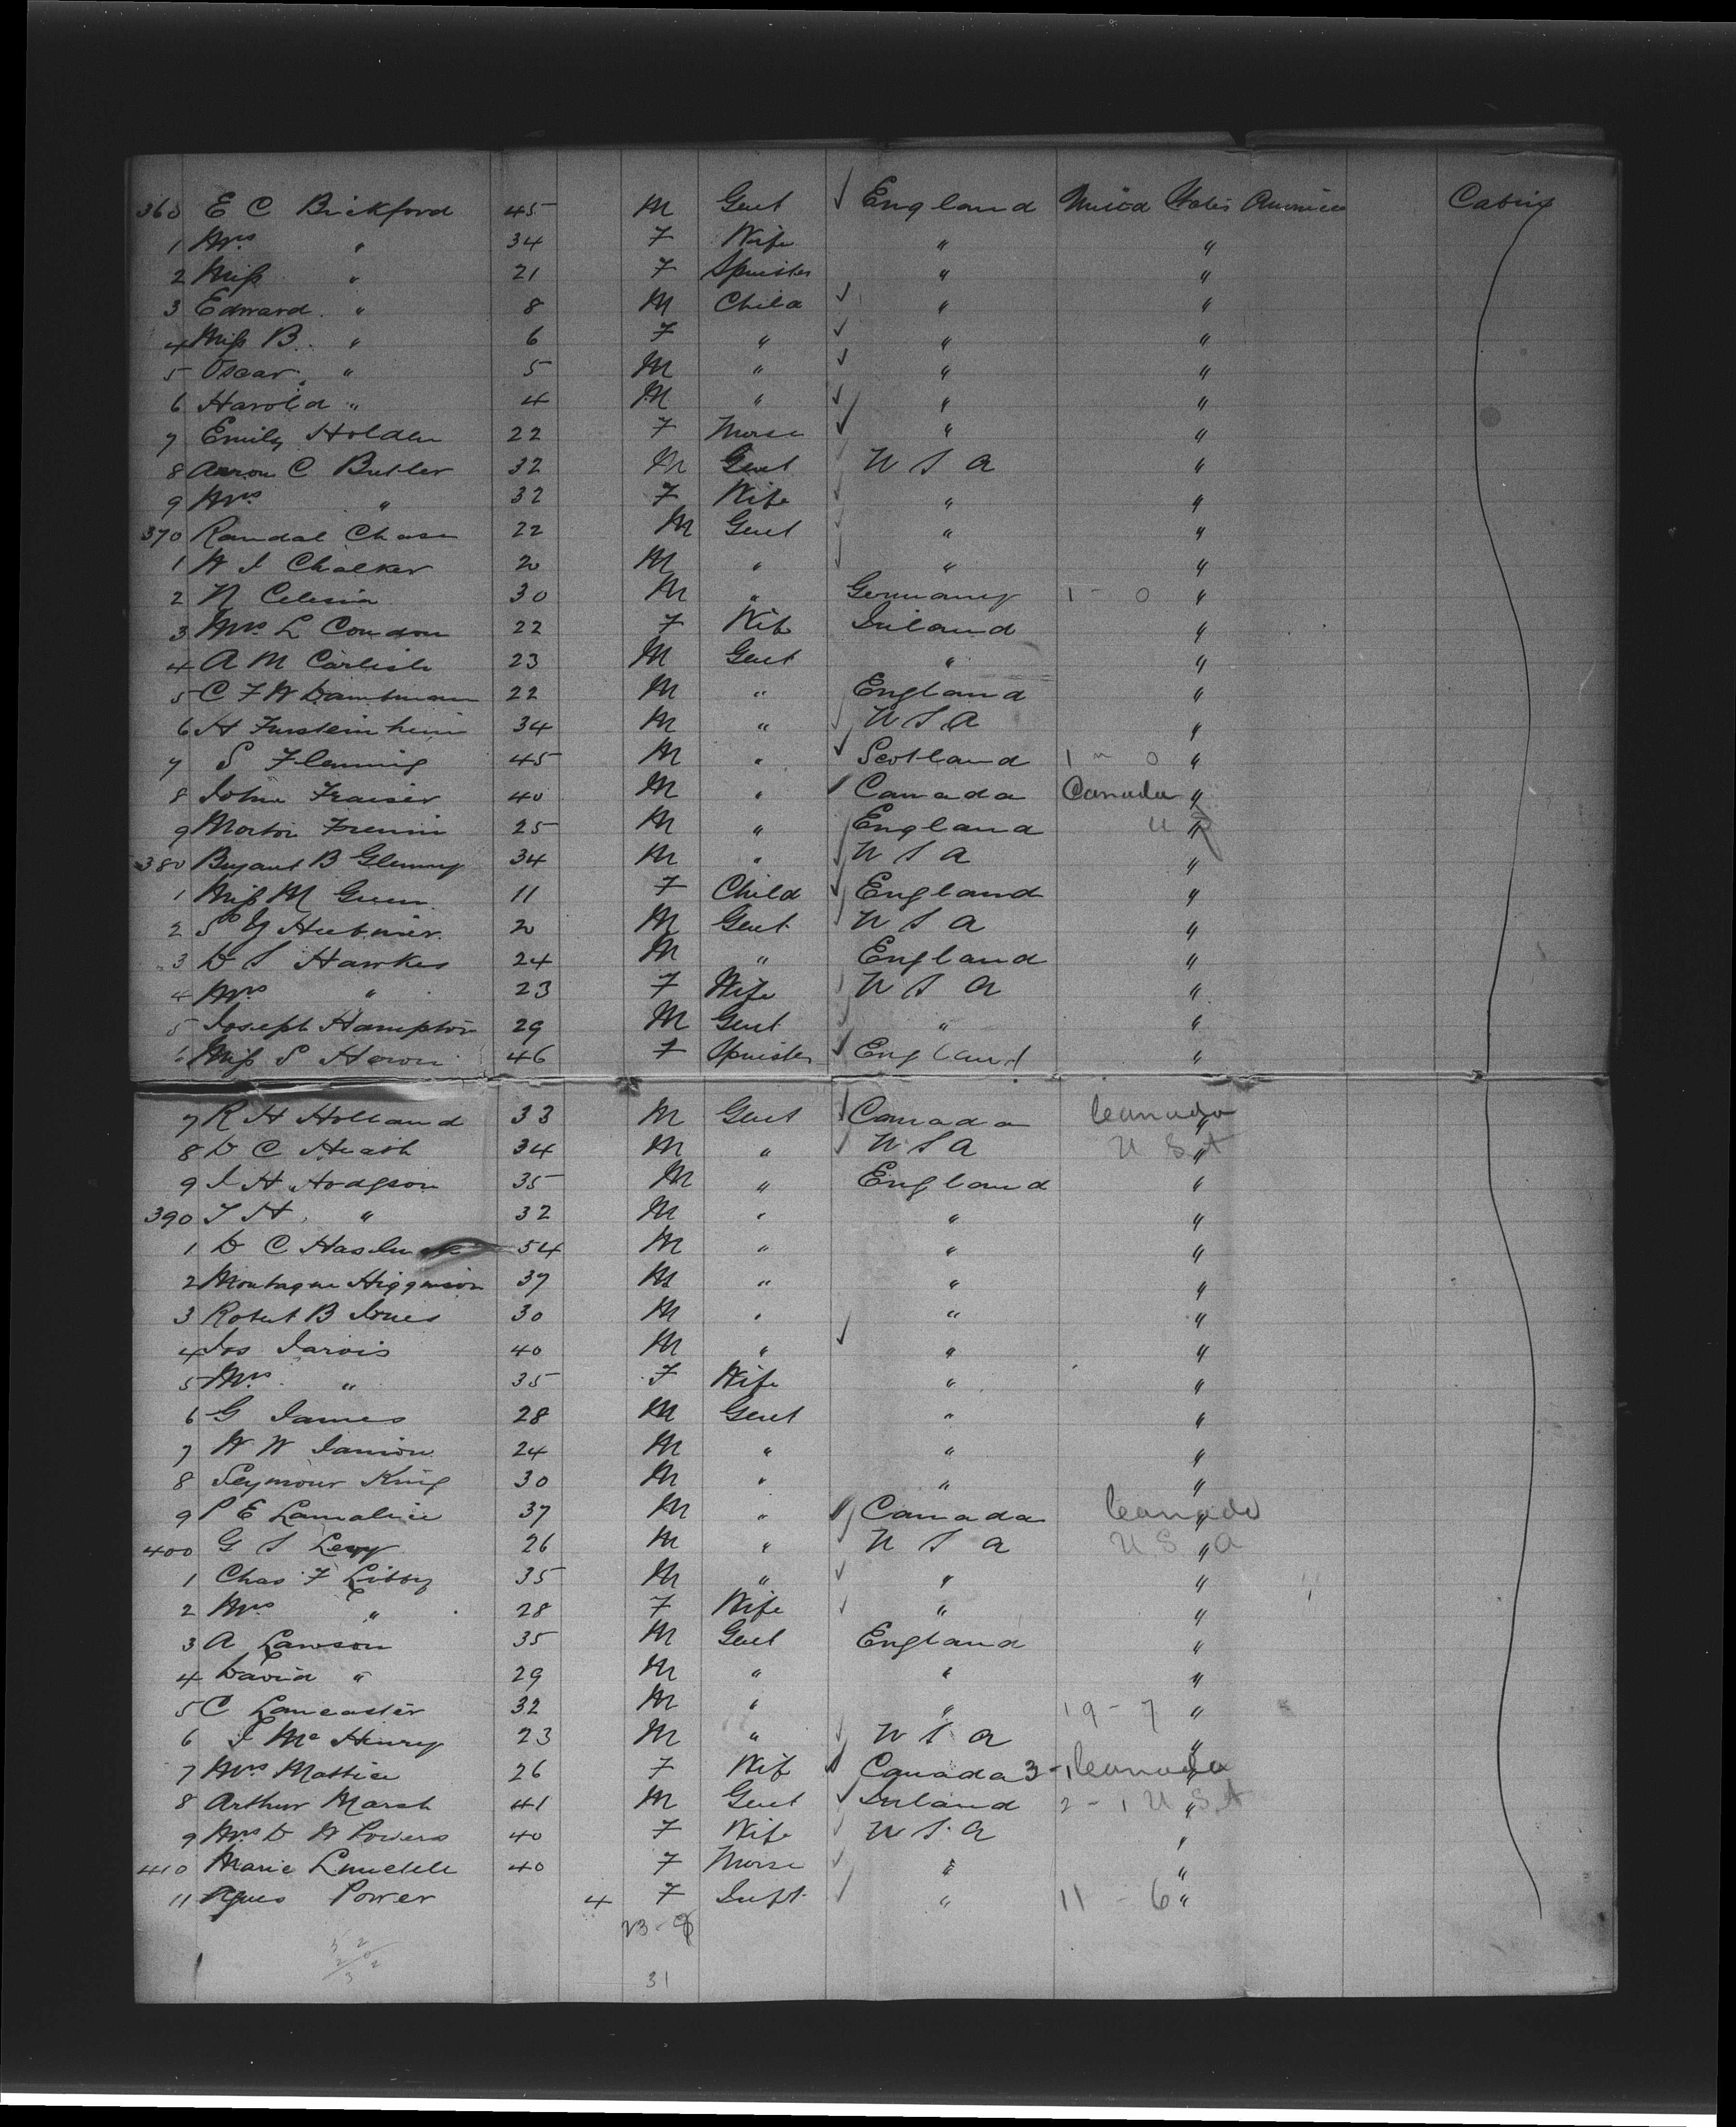 360 E C Bickford 45 M Gent ✓ England United States America Cabin
1 Mrs " 34 F Wife " "
2 Miss " 21 F Spinster " "
3 Edward " 8 M Child ✓ " "
4 Miss B. " 6 F " ✓ " "
5 Oscar " 5 M " ✓ " "
6 Harold " 4 M " ✓ " "
7 Emily Holden 22 F Nurse ✓ " "
8 Aaron C Butler 32 M Gent ✓ U S A "
9 Mrs " 32 F Wife ✓ " "
370 Randal Chase 22 M Gent ✓ " "
1 W I Chalker 20 M " ✓ " "
2 N Celesia 30 M " Germany 1 - 0 "
3 Mrs L Condon 22 F Wife Ireland "
4 A M Carlisle 23 M Gent " "
5 C F W 22 M " England "
6 H Furstein heim 34 M " ✓ U S A "
7 S Fleming 45 M " ✓ Scotland 1 - 0 "
8 John Fraiser 40 M " ✓ Canada Canada "
9 25 M " ✓ England U "
380 Bryant B 34 M " ✓ U S A "
1 Miss M Green 11 F Child ✓ England "
2 20 M Gent ✓ U S A "
3 D S Hawkes 24 M " England "
4 Mrs " 23 F Wife ✓ U S A "
5 Joseph Hampton 29 M Gent ✓ " "
6 Miss S Heron 46 F Spinster ✓ England "
7 R H Holland 33 M Gent ✓ Canada Canada "
8 D C Heath 34 M " ✓ U S A U S A "
9 J H Hodgson 35 M " England "
390 T H. " 32 M " " "
1 D C 54 M " " "
2 Montague Higginson 37 M " " "
3 Robert B Jones 30 M " " "
4 Jos Jarvis 40 M " ✓ " "
5 Mrs " 35 F Wife " "
6 G James 28 M Gent " "
7 W W Janion 24 M " " "
8 Seymour King 30 M " " "
9 P E 37 M " ✓ Canada Canada "
400 G S Levy 26 M " ✓ U S A U S A "
1 Chas F Libby 35 M " ✓ " "
2 Mrs " 28 F Wife ✓ " "
3 A Lawson 35 M Gent England "
4 David " 29 M " " "
5 C Lancaster 32 M " " 19 - 7 "
6 J Mc Henry 23 M " ✓ U S A "
7 Mrs Mattice 26 F Wife ✓ Canada 3 - 1 Canada "
8 Arthur Marsh 41 M Gent ✓ Ireland 2 - 1 U S A "
9 Mrs D W Powers 40 F Wife ✓ U S A "
410 Marie 40 F Nurse ✓ " "
11 Agnes Power 4 F Inft ✓ " 11 - 6 "
23 - 8
31